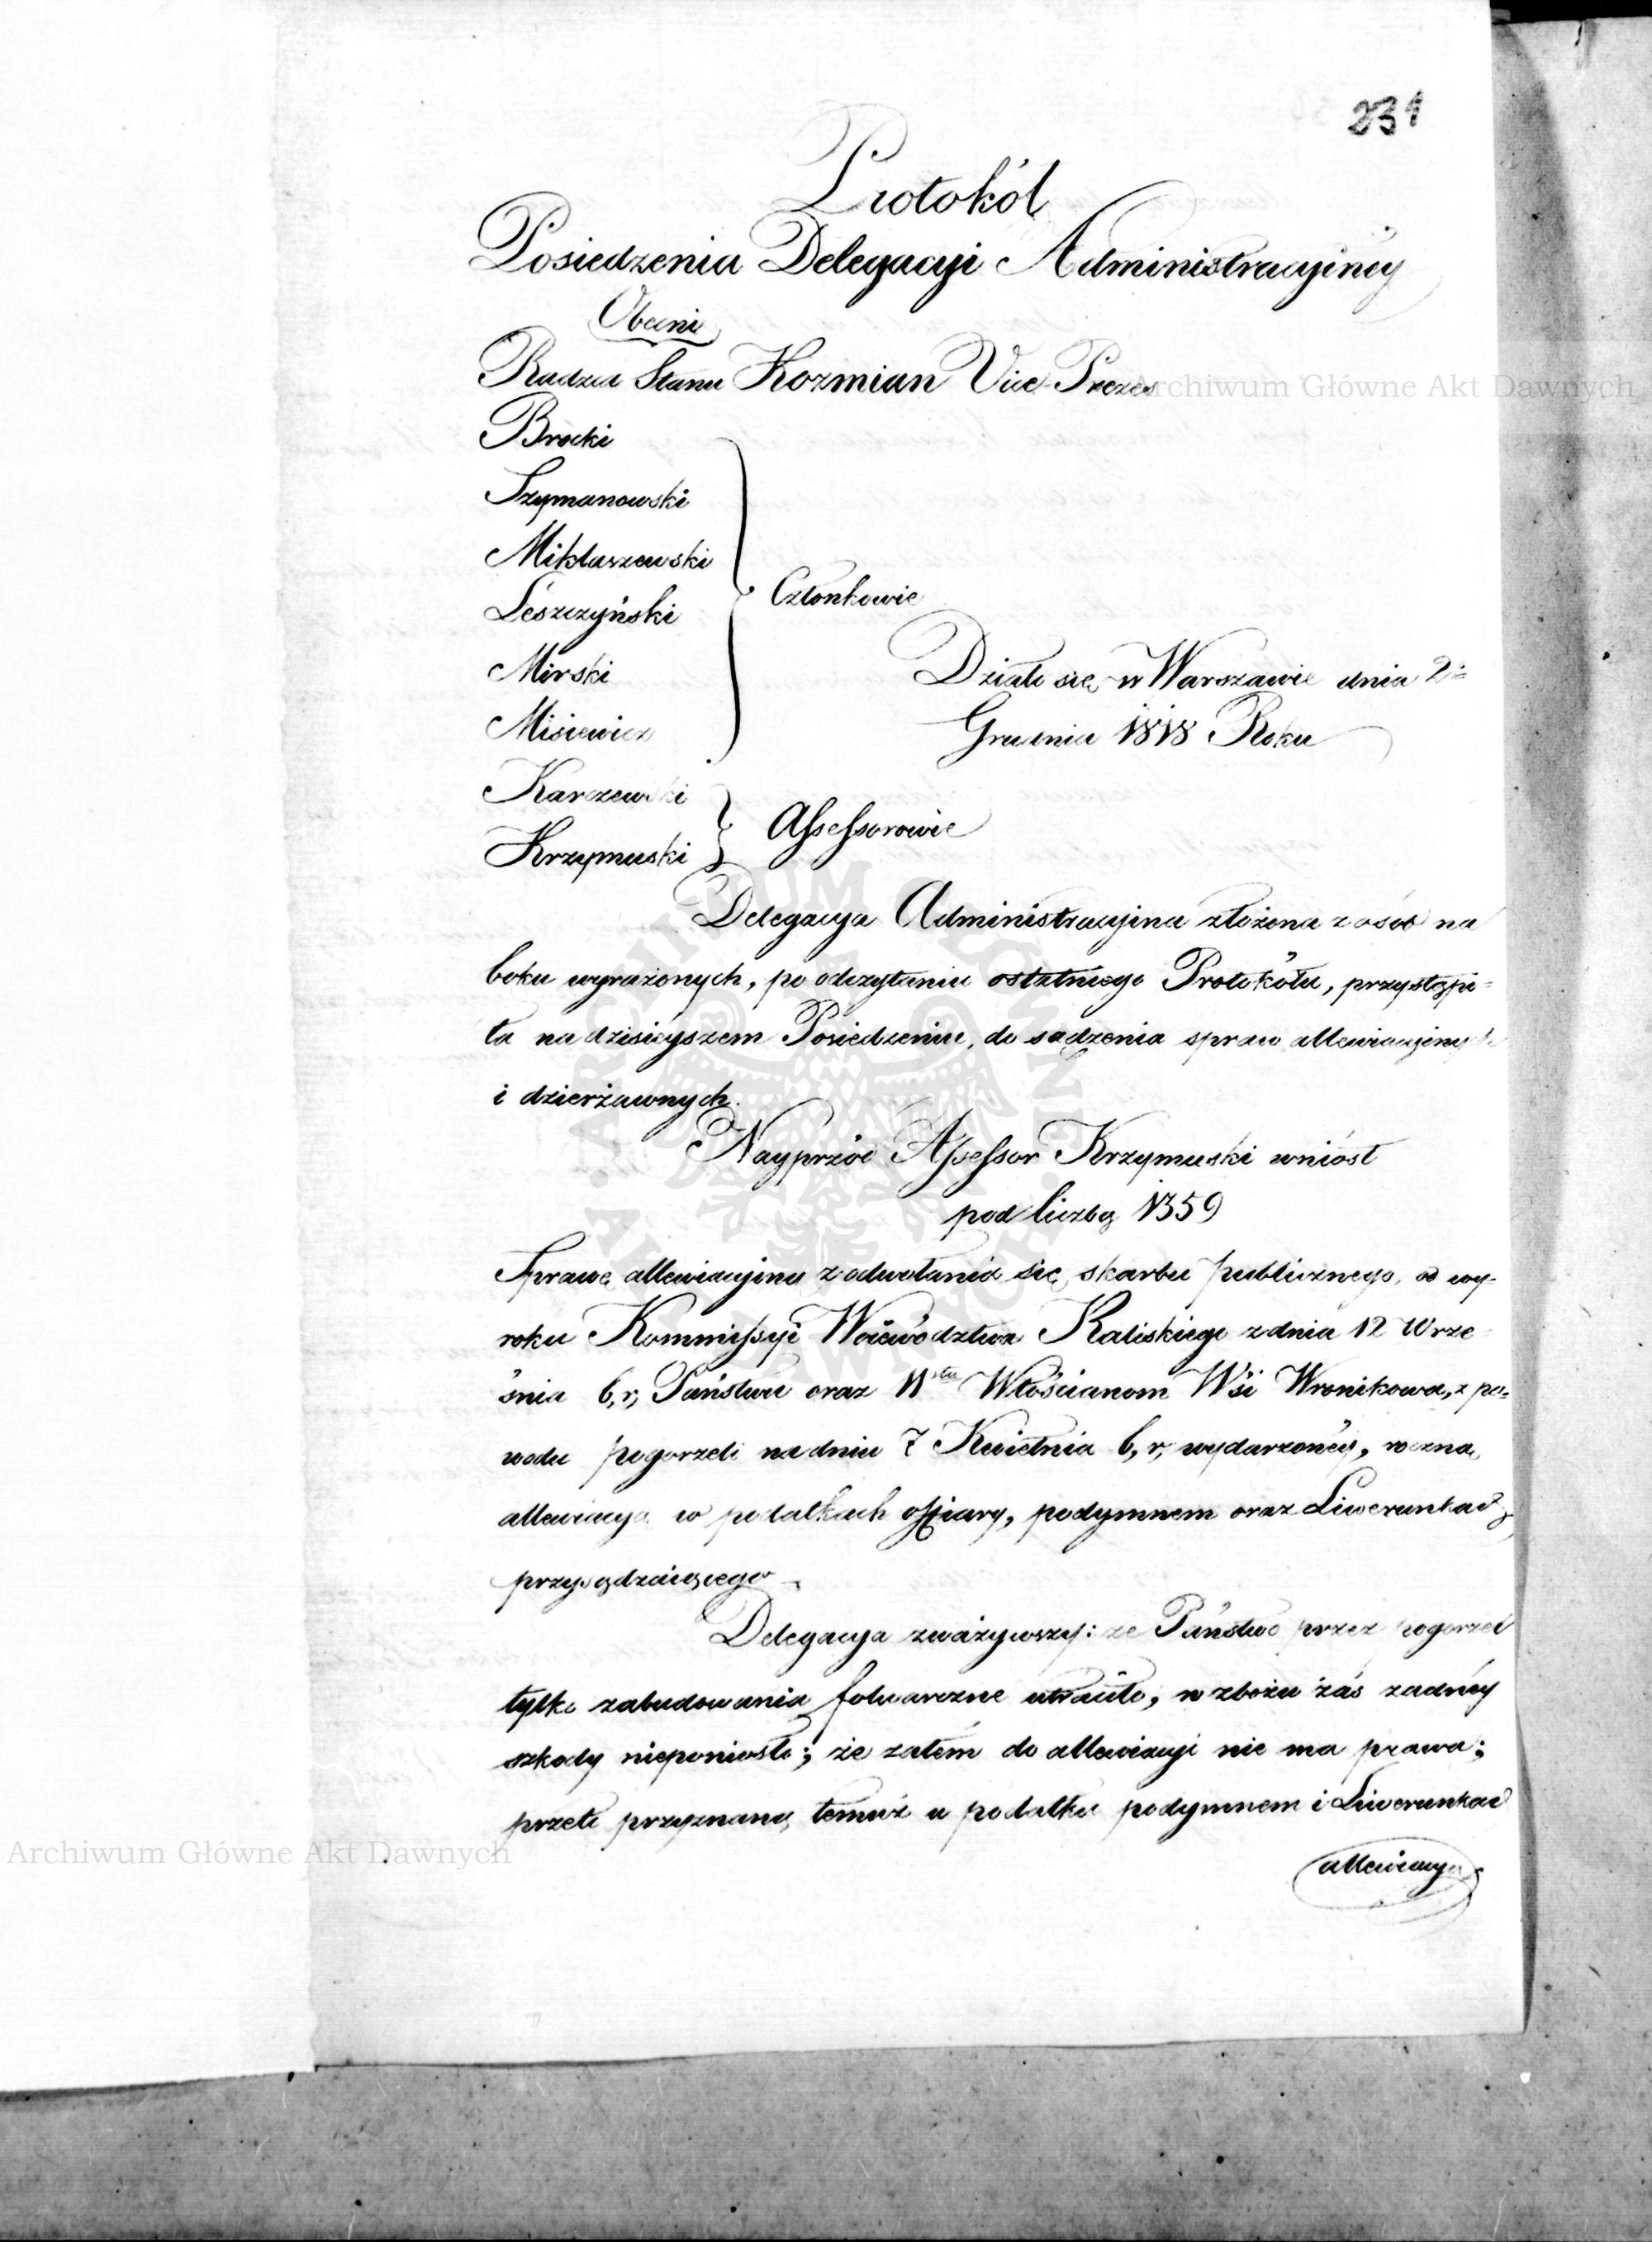 231
Protokół
Posiedzenia Delegacyi Administracyinéy
Obecni
Radzca Stanu Kozmian Vice-Prezes
Archiwum Główne Akt Dawnych
Brocki
Szymanowski
Mikłaszewski
Leszczyński
Mirski
Misiewicz
Członkowie
Działo się w Warszawie dnia 2go
Grudnia 1818 Roku
Karczewski
Krzymuski
Assessorowie
Delegacya Administracyina złożona z osób na
boku wyrażonych, po odczytaniu ostatniego Protokółu, przystąpi=
ła na dzisieyszém Posiedzeniu, do sądzenia spraw allewiacyinych
i dzierżawnych.
Nayprzód Assessor Krzymuski wniósł
pod liczbą 1359
Sprawę allewiacyiną z odwołania się skarbu publicznego, od wy-
roku Kommissyi Woiewództwa Kaliskiego z dnia 12 Wrze=
śnia b, r, Państwu oraz 11stu Włościanom Wsi Wronikowa, z po=
wodu pogorzeli na dniu 7 Kwietnia b, r, wydarzonéy, roczną
allewiacyą w podatkach offiary, podymnem oraz Liwerunkach
przysądzaiącego
Delegacya zważywszy: że Państwo przez pogorzel
tylko zabudowania folwarczne utraciło, w zbożu zaś żadnéy
szkody nieponiosło; że zatém do allewiacyi nie ma prawa;
przeto przyznaną temuż w podatku podymnem i Liwerunkach
allewiacyą
Archiwum Główne Akt Dawnych
ARCHIWUM GŁÓWNE AKT DAWNYCH